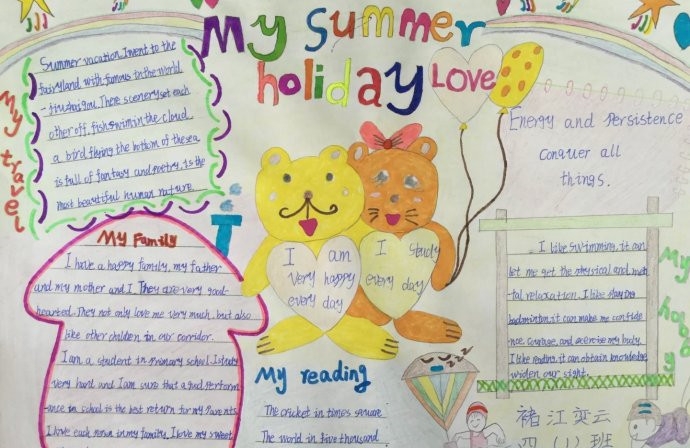 My Summer
holiday
LOVE
My travel
Summer vacation, I went to the
fairyland with famous in the world
- jiuzhaigou. There scenery set each
other off, fish swim in the cloud
a bird flying the bottom of the sea
is full of fantasy and poetry, is the
most beautiful human nature
My Family
I have a happy family, my father
and my mother and I. They are very good-
hearted. They not only love me very much, but also
like other children in our corridor.
I am a student in primary school. I study
very hard and I am sure that a good perform
-ance in school is the best return for my Parents
I love each person in my family. I love my sweet
I am
very happy
every day
I study
every day
My reading
The cricket in times square
The world in five thousand
Energy and Persistence
Conquer all
things.
My hobby
I like swimming, it can
let me get the physical and men
tal relaxation. I like playing
badminton, it can make me confide
nce, courage, and exercise my body.
I like reading, it can obtain knowledge,
widen our sight.
zzz
褚江奕云
四(1)班